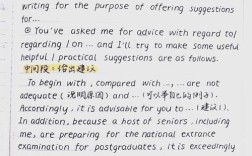 writing for the purpose of offering suggestions
for...
② You've asked me for advice with regard to/
regarding / on ... and I'll try to make some useful
helpful / practical suggestions are as follows.
中间段：给出建议
To begin with, compared with ..., ... are not
adequate (说明原因) and ... (可以举自己的例子).
Accordingly, it is advisable for you to ... (建议1).
In addition, because a host of seniors, including
me, are preparing for the national extrance
examination for postgraduates, it is exceedingly